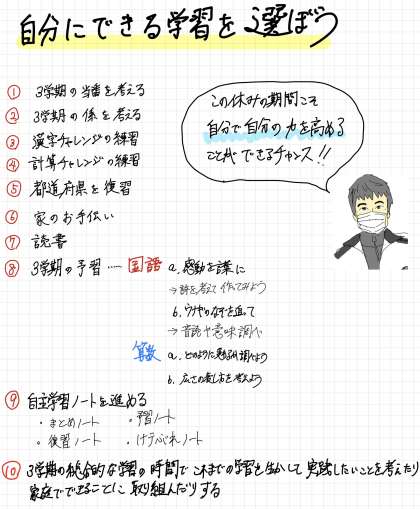 自分にできる学習を選ぼう
① 3学期の当番を考える
② 3学期の係を考える
③ 漢字チャレンジの練習
④ 計算チャレンジの練習
⑤ 都道府県を復習
⑥ 家のお手伝い
⑦ 読書
⑧ 3学期の予習…… 国語 a. 感動を言葉に
→詩を考えて作ってみよう
b. ウナギのなぞを追って
→音読や意味調べ
算数 a. どのように変わるか調べよう
b. 広さの表し方を考えよう
⑨ 自主学習ノートを進める
・まとめノート ・予習ノート
・復習ノート ・けテぶれノート
⑩ 3学期の総合的な学習の時間でこれまでの学習を生かして実践したいことを考えたり
家庭でできることに取り組んだりする
この休みの期間こそ
自分で自分の力を高める
ことができるチャンス!!